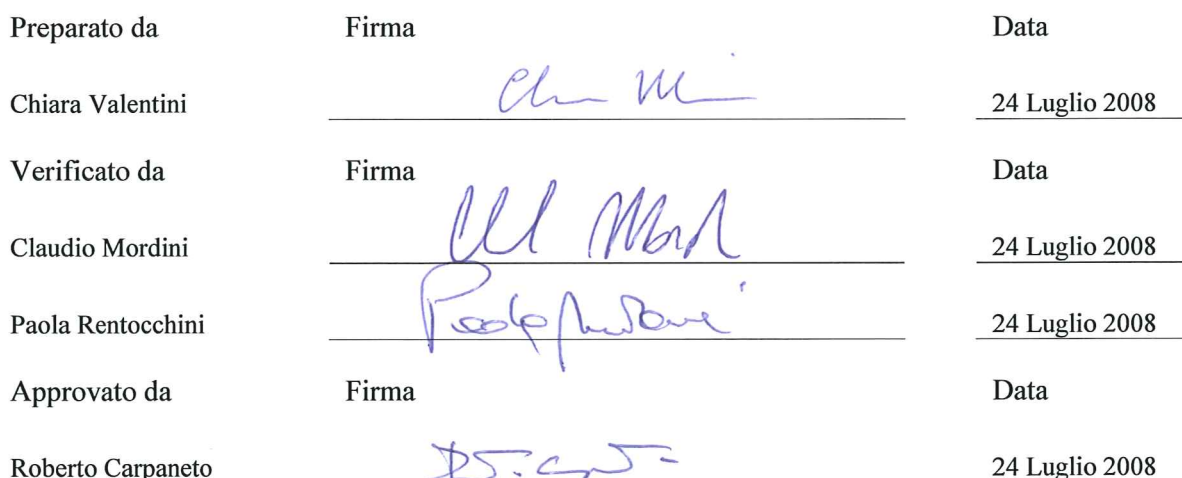 Preparato da Firma Data
Chiara Valentini 24 Luglio 2008
Verificato da Firma Data
Claudio Mordini 24 Luglio 2008
Paola Rentocchini 24 Luglio 2008
Approvato da Firma Data
Roberto Carpaneto 24 Luglio 2008